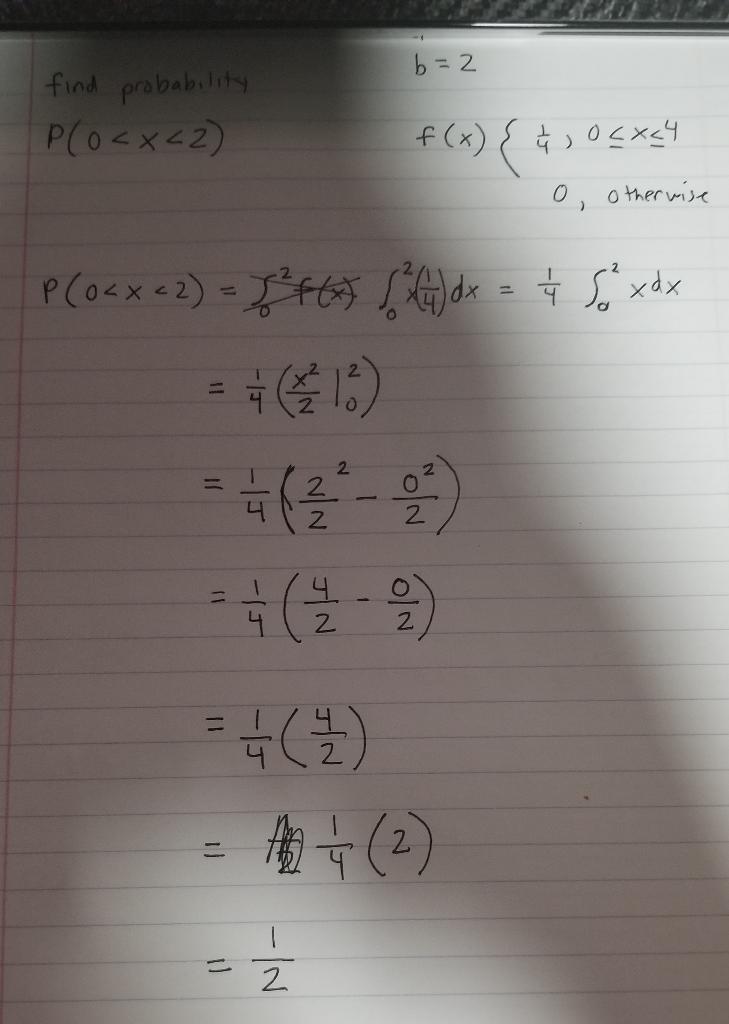 b = 2
find probability
P(0 < x < 2) f(x) { 1/4, 0 ≤ x ≤ 4
0, otherwise
P(0 < x < 2) = ∫₀² f(x) ∫₀² x(1/4) dx = 1/4 ∫₀² x dx
= 1/4 (x²/2 |₀²)
= 1/4 (2²/2 - 0²/2)
= 1/4 (4/2 - 0/2)
= 1/4 (4/2)
= 1/4 (2)
= 1/2